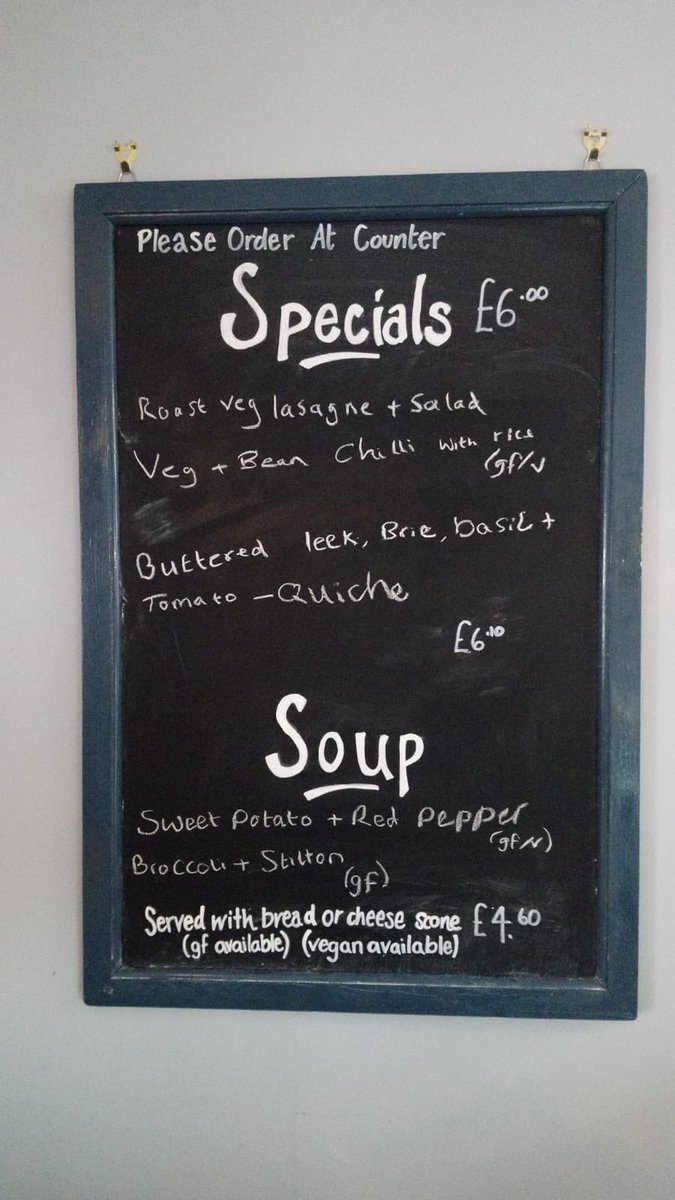 Please Order At Counter
Specials £6.00
Roast veg lasagne + Salad
Veg + Bean Chilli with rice
(gf/v
Buttered leek, Brie, basil +
Tomato - Quiche
£6.10
Soup
Sweet Potato + Red Pepper
(gf/v)
Broccoli + Stilton
(gf)
Served with bread or cheese scone £4.60
(gf available) (vegan available)